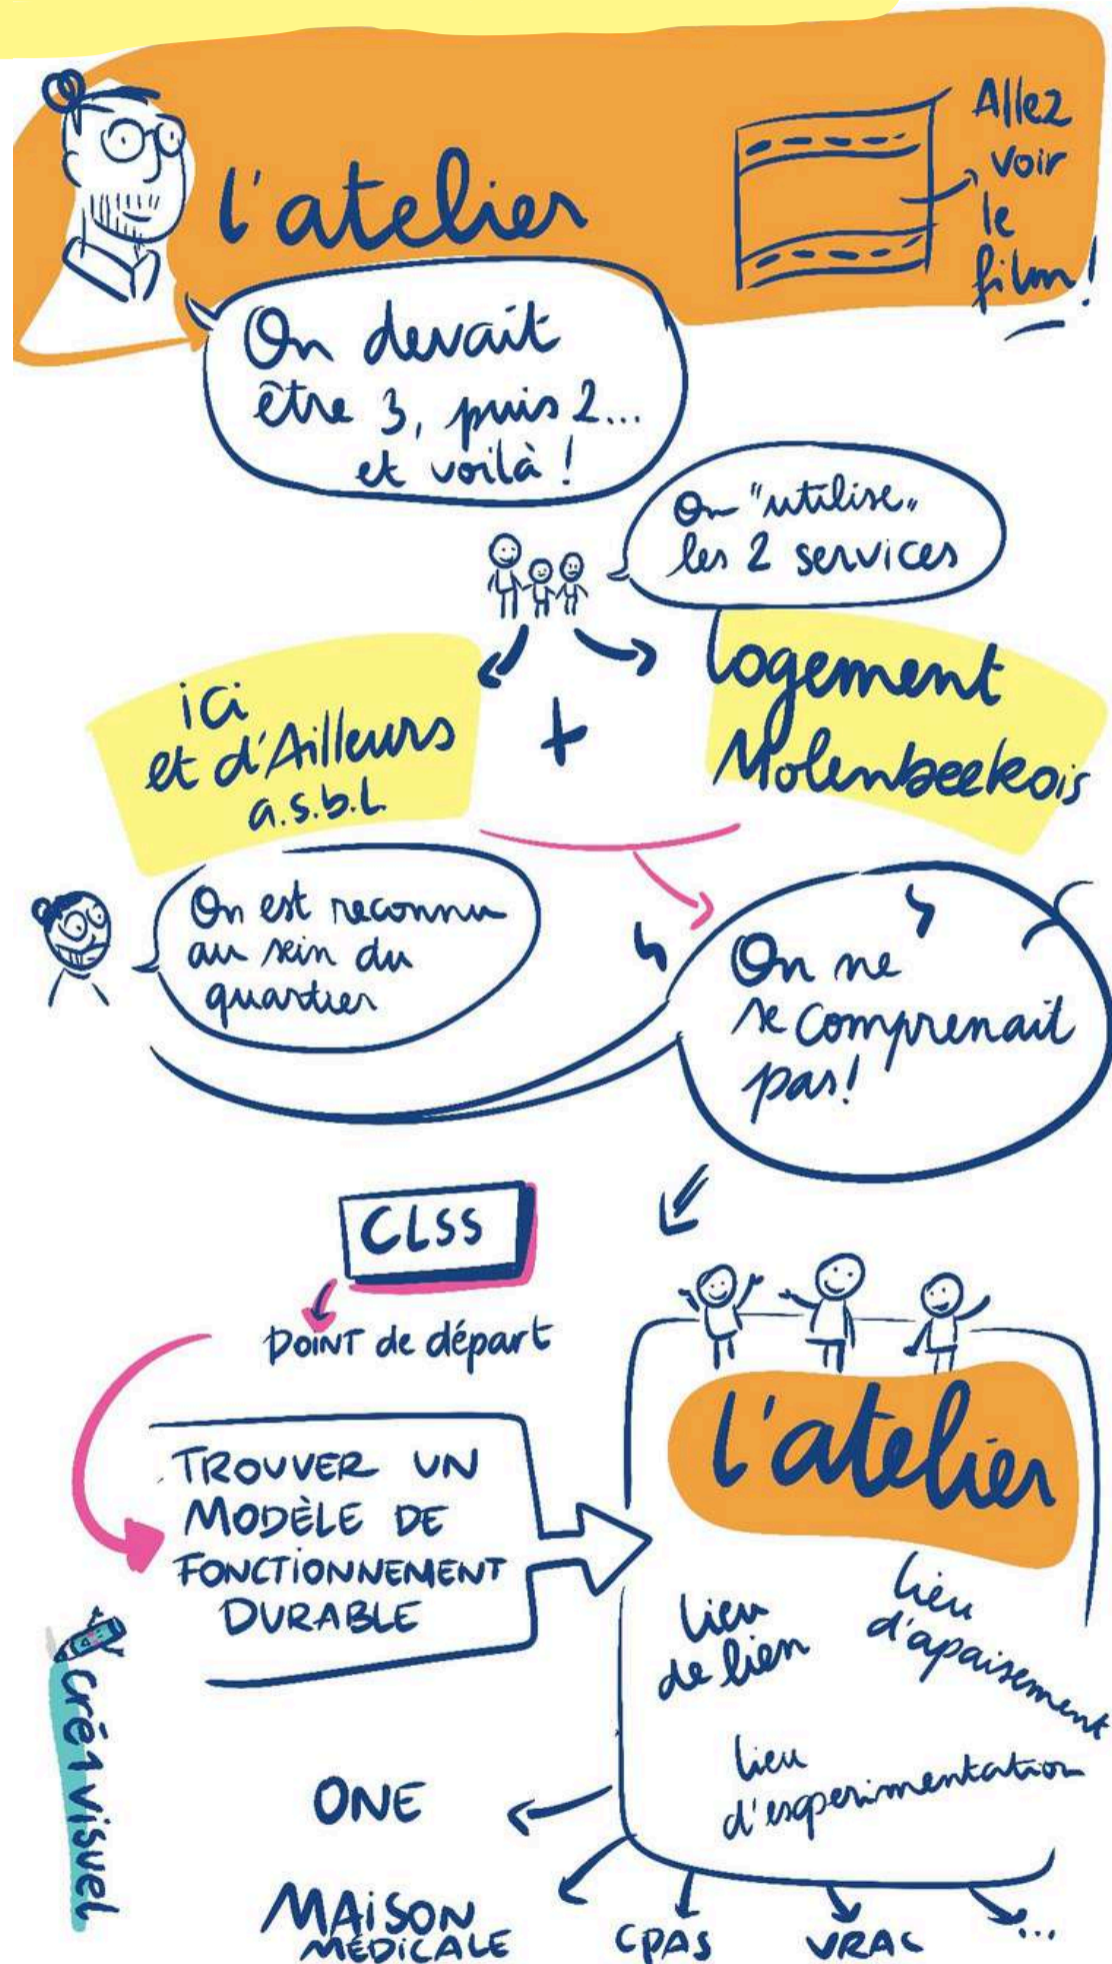 l'atelier
Allez
voir
le
film!
On devait
être 3, puis 2...
et voilà !
On "utilise"
les 2 services
ici
et d'Ailleurs
a.s.b.l.
+
logement
Molenbeekois
On est reconnu
au sein du
quartier
On ne
se comprenait
pas!
CLSS
POINT de départ
TROUVER UN
MODÈLE DE
FONCTIONNEMENT
DURABLE
l'atelier
lieu
de lien
lieu
d'apaisement
lieu
d'experimentation
ONE
MAISON
MÉDICALE
CPAS
VRAC
...
cré1visuel